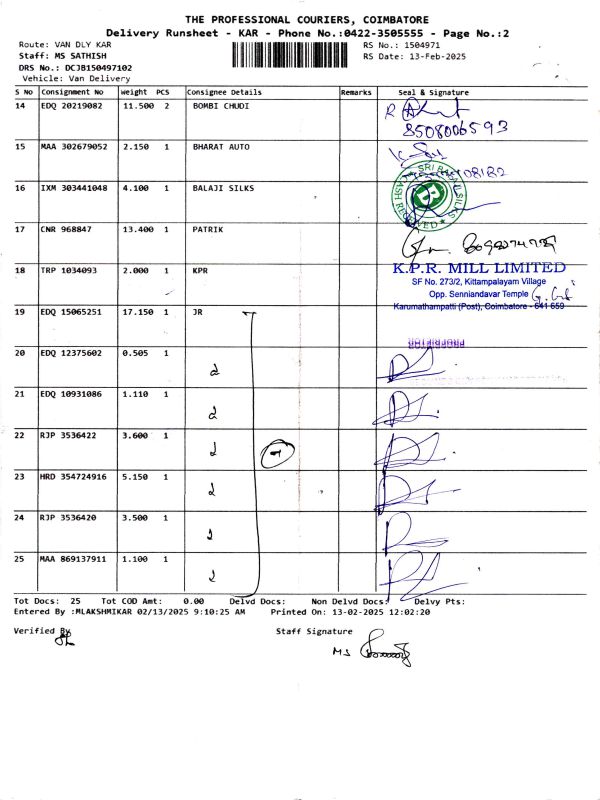 THE PROFESSIONAL COURIERS, COIMBATORE
Delivery Runsheet - KAR - Phone No.:0422-3505555 - Page No.:2
Route: VAN DLY KAR RS No.: 1504971
Staff: MS SATHISH RS Date: 13-Feb-2025
DRS No.: DCJB150497102
Vehicle: Van Delivery
S No Consignment No Weight PCS Consignee Details Remarks Seal & Signature
14 EDQ 20219082 11.500 2 BOMBI CHUDI
8508006593
15 MAA 302679052 2.150 1 BHARAT AUTO
16 IXM 303441048 4.100 1 BALAJI SILKS
17 CNR 968847 13.400 1 PATRIK
18 TRP 1034093 2.000 1 KPR K.P.R. MILL LIMITED
SF No. 273/2, Kittampalayam Village
Opp. Senniandavar Temple
Karumathampatti (Post), Coimbatore - 641 659
19 EDQ 15065251 17.150 1 JR
20 EDQ 12375602 0.505 1
21 EDQ 10931086 1.110 1
22 RJP 3536422 3.600 1
23 HRD 354724916 5.150 1
24 RJP 3536420 3.500 1
25 MAA 869137911 1.100 1
Tot Docs: 25 Tot COD Amt: 0.00 Delvd Docs: Non Delvd Docs: Delvy Pts:
Entered By :MLAKSHMIKAR 02/13/2025 9:10:25 AM Printed On: 13-02-2025 12:02:20
Verified By Staff Signature
MS